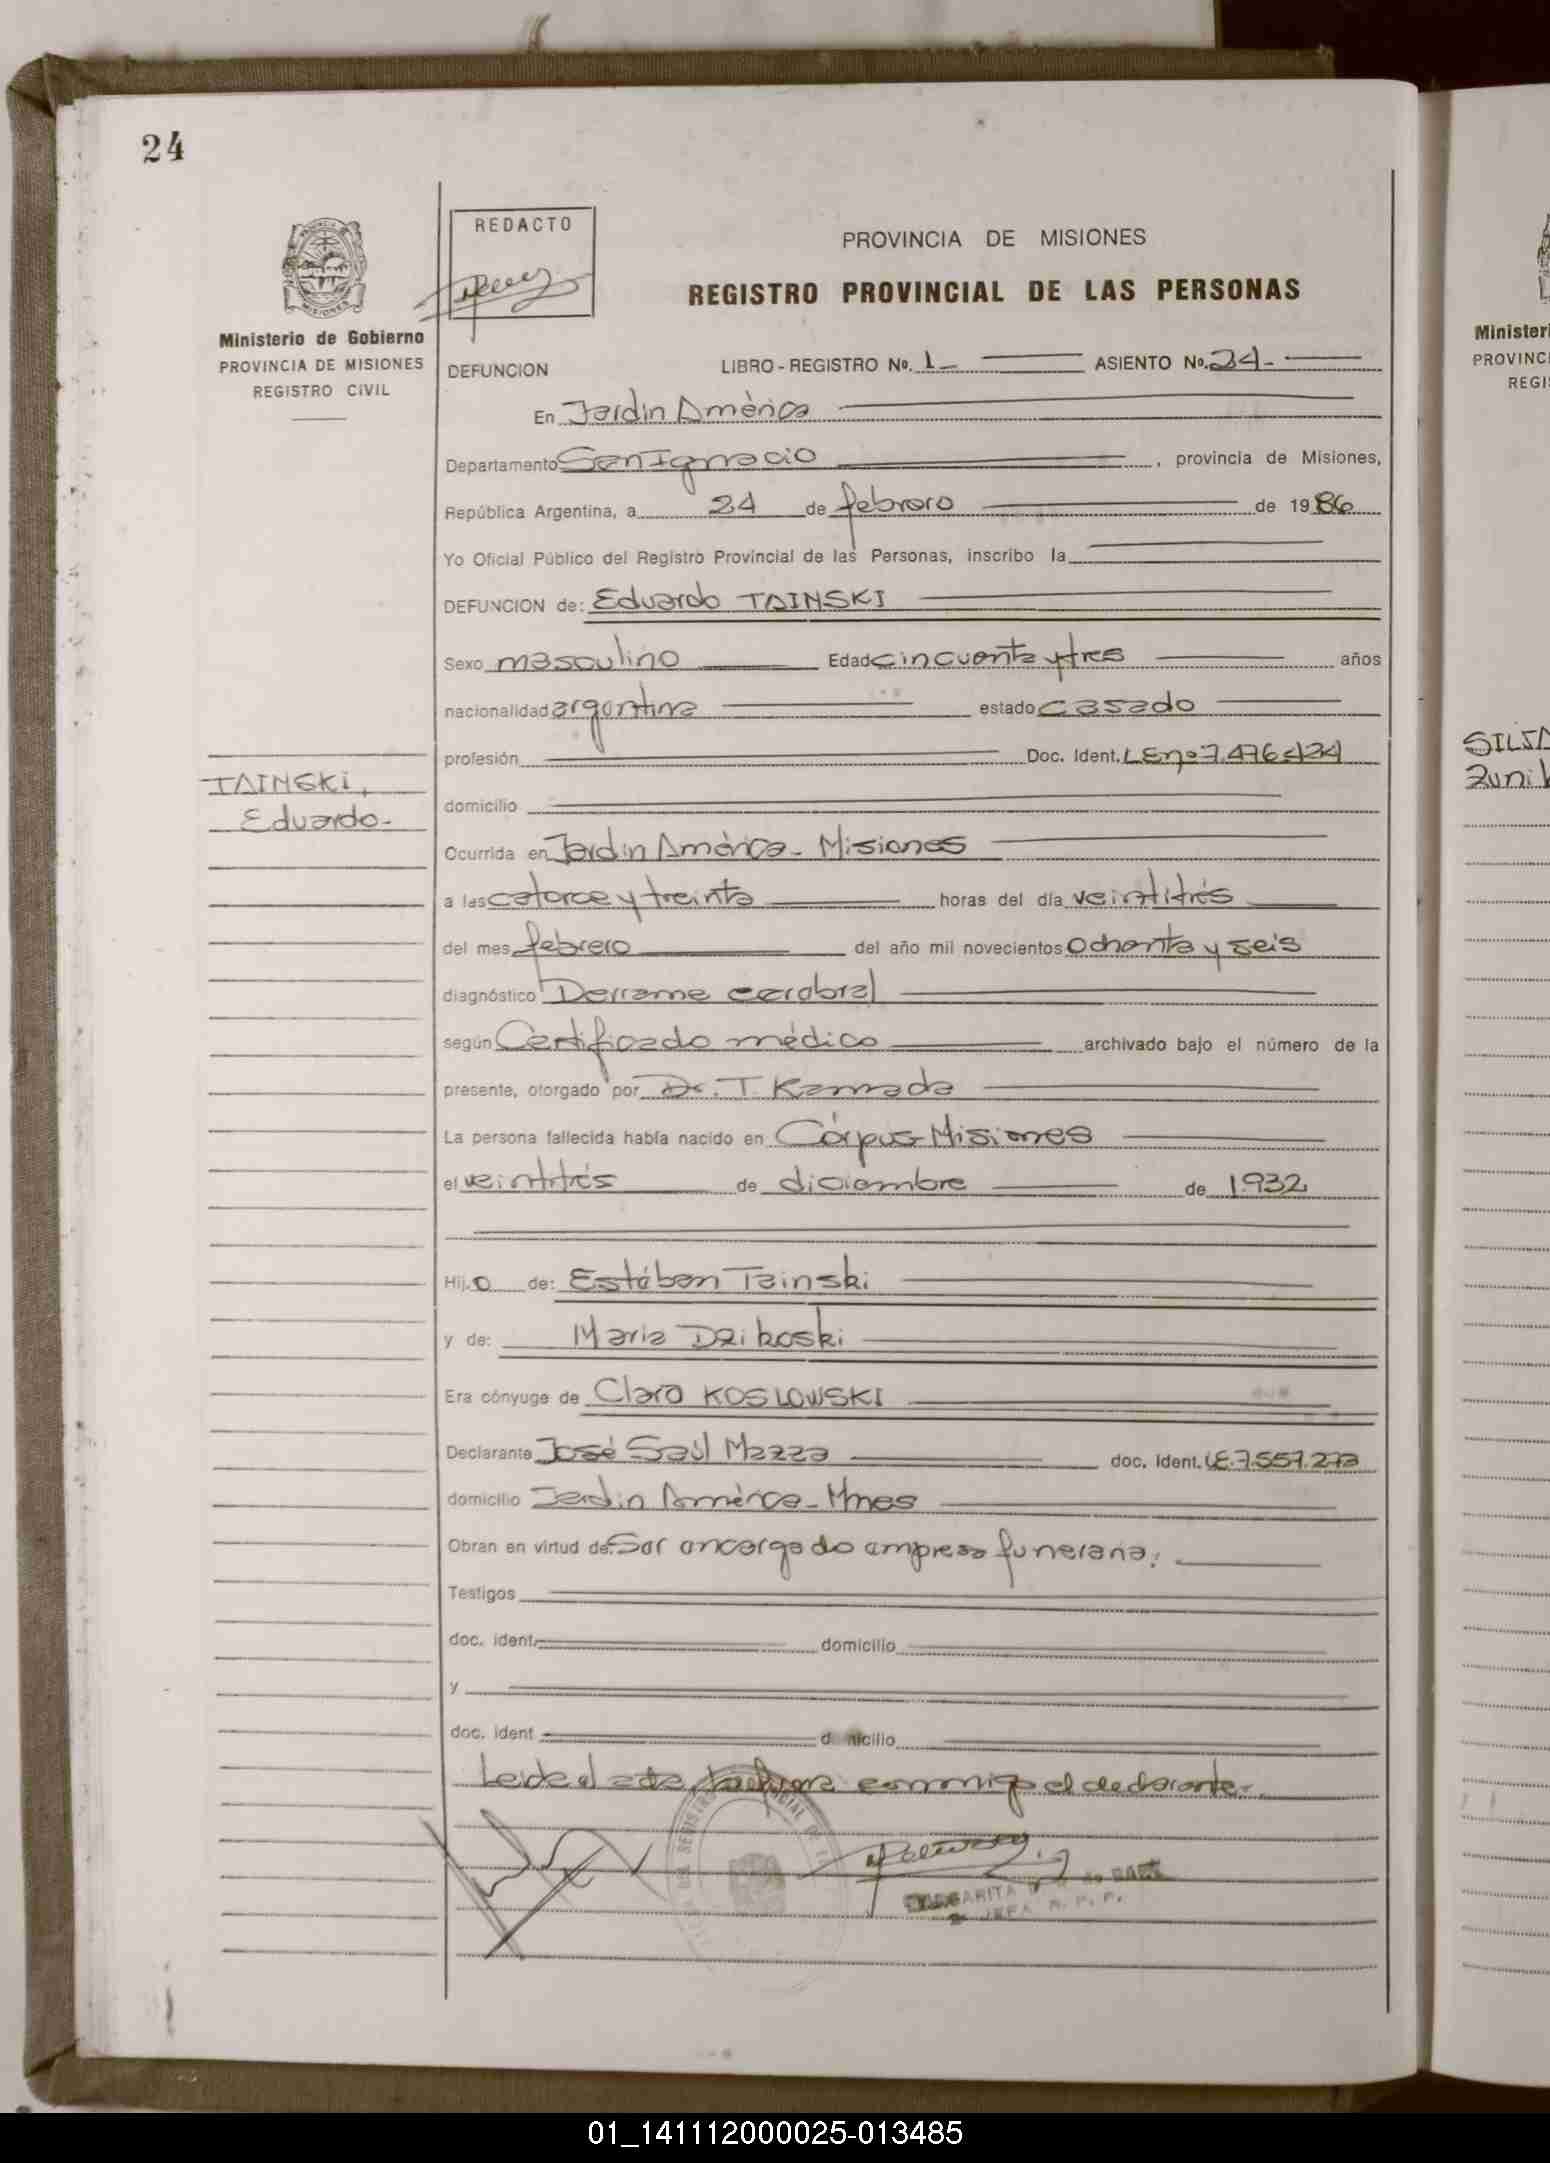 24
REDACTO
PROVINCIA DE MISIONES
REGISTRO PROVINCIAL DE LAS PERSONAS
Ministerio de Gobierno
PROVINCIA DE MISIONES
REGISTRO CIVIL
DEFUNCION LIBRO - REGISTRO No. 1 - ASIENTO No. 24 -
En Jardin Amèrica
Departamento San Ignacio, provincia de Misiones,
República Argentina, a 24 de febrero de 1986
Yo Oficial Público del Registro Provincial de las Personas, inscribo la
DEFUNCION de: Eduardo TAINSKI
Sexo masculino Edad cincuenta y tres años
nacionalidad argentina estado casado
profesión Doc. Ident. LEnº 7.476.424
TAINSKI,
Eduardo-
domicilio
Ocurrida en Jardin Amèrica - Misiones
a las catorce y treinta horas del día veintitrés
del mes febrero del año mil novecientos ochenta y seis
diagnóstico Derrame cerebral
según Certificado médico archivado bajo el número de la
presente, otorgado por Dr. T. Kamada
La persona fallecida había nacido en Córpus-Misiones
el veintitrés de diciembre de 1932
Hijo de: Estéban Tainski
y de: Maria Dzikoski
Era cónyuge de Clara KOSLOWSKI
Declarante José Saúl Mazza doc. Ident. LE.7.557.273
domicilio Jardin Amèrica - Mnes
Obran en virtud de: Ser encargado empresa funeraria.
Testigos
doc. ident. domicilio
y
doc. ident domicilio
Leida el acta, la firma conmigo el declarante.-
MARGARITA de
JEFA R. P. P.
Minister
PROVINC
REGI
SILVA
Zuni
01_141112000025-013485